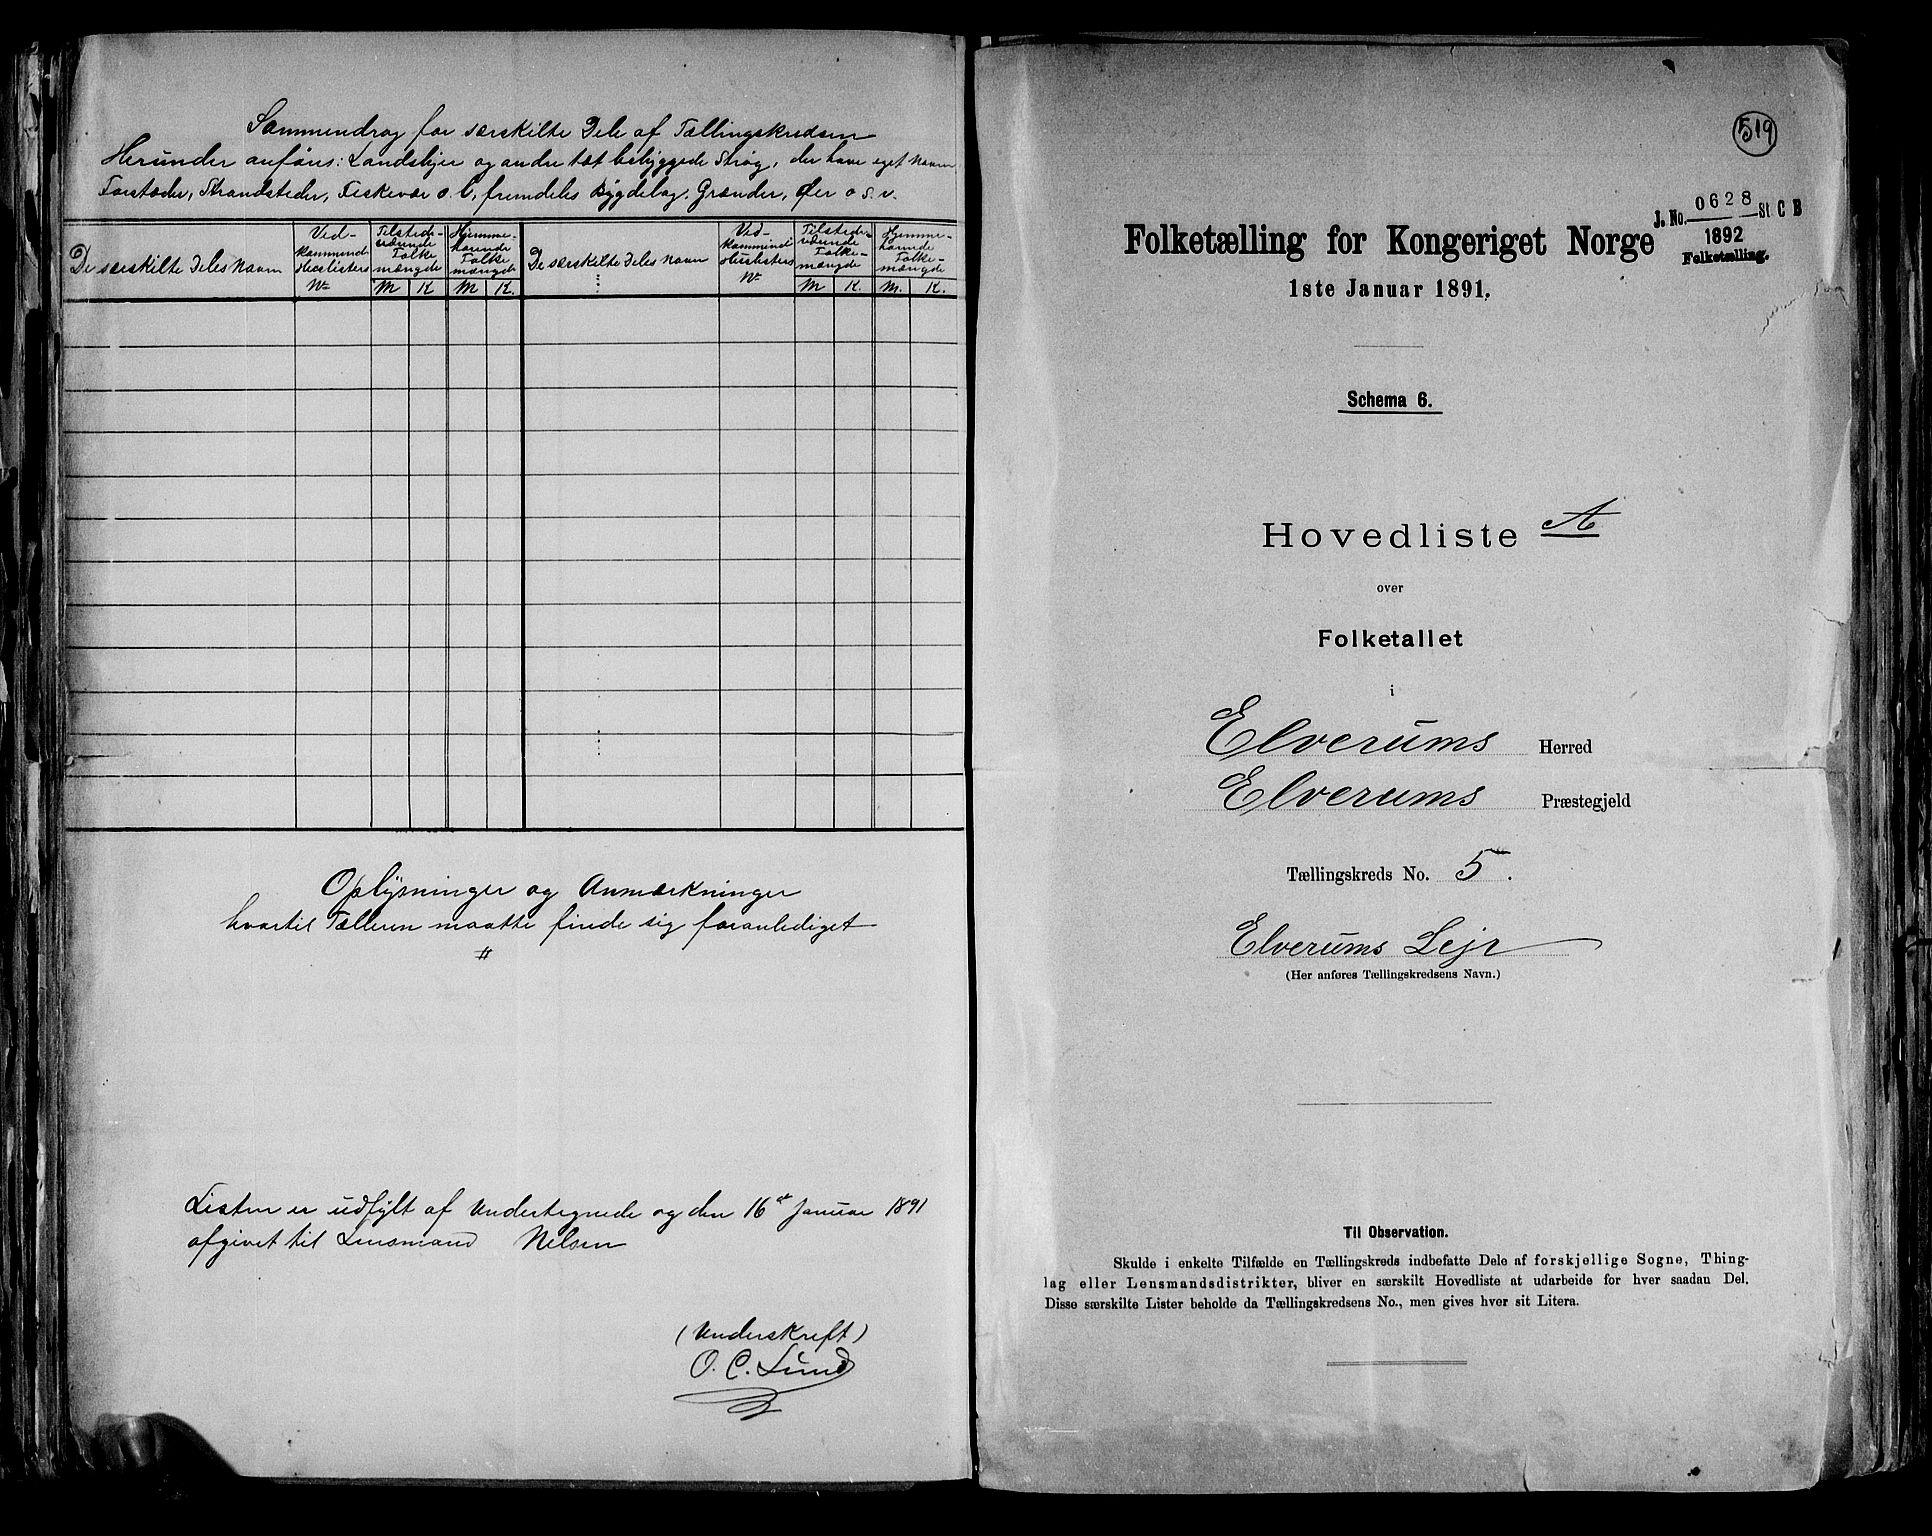 Sammendrag for særskilte Dele af Tællingskredsen
Herunder anføres: Landsbyer og andre tæt bebyggede Strøg, der have eget Navn
Forstæder, Strandsteder, Fiskevær o. l., fremdeles Bygdelag. Grænder, Øer o. s. v.
De særskilte Deles Navn
Ved-
kommende
Huslisters
No
Tilstede-
værende
Folke
mængde
M K
Hjemme-
hørende
Folke
mængde
M K.
De særskilte Deles Navn
Ved-
kommende
Huslisters
No
Tilstede-
værende
Folke-
mængde
M K.
Hjemme-
hørende
Folke-
mængde
M. K.
Oplysninger og Anmærkninger
hvortil Tælleren maatte finde sig foranlediget
//
Listen er udfylt af Undertegnede og den 16de Januar 1891
afgivet til Lensmand Nelsen
(Underskrift)
O. C. Lund
519
J. No. 0628 St C B
1892
Folketælling.
Folketælling for Kongeriget Norge
1ste Januar 1891.
Schema 6.
Hovedliste A
over
Folketallet
i
Elverums Herred
Elverums Præstegjeld
Tællingskreds No. 5.
Elverums Lejr
(Her anføres Tællingskredsens Navn.)
Til Observation.
Skulde i enkelte Tilfælde en Tællingskreds indbefatte Dele af forskjellige Sogne, Thing-
lag eller Lensmandsdistrikter, bliver en særskilt Hovedliste at udarbeide for hver saadan Del.
Disse særskilte Lister beholde da Tællingskredsens No., men gives hver sit Litera.